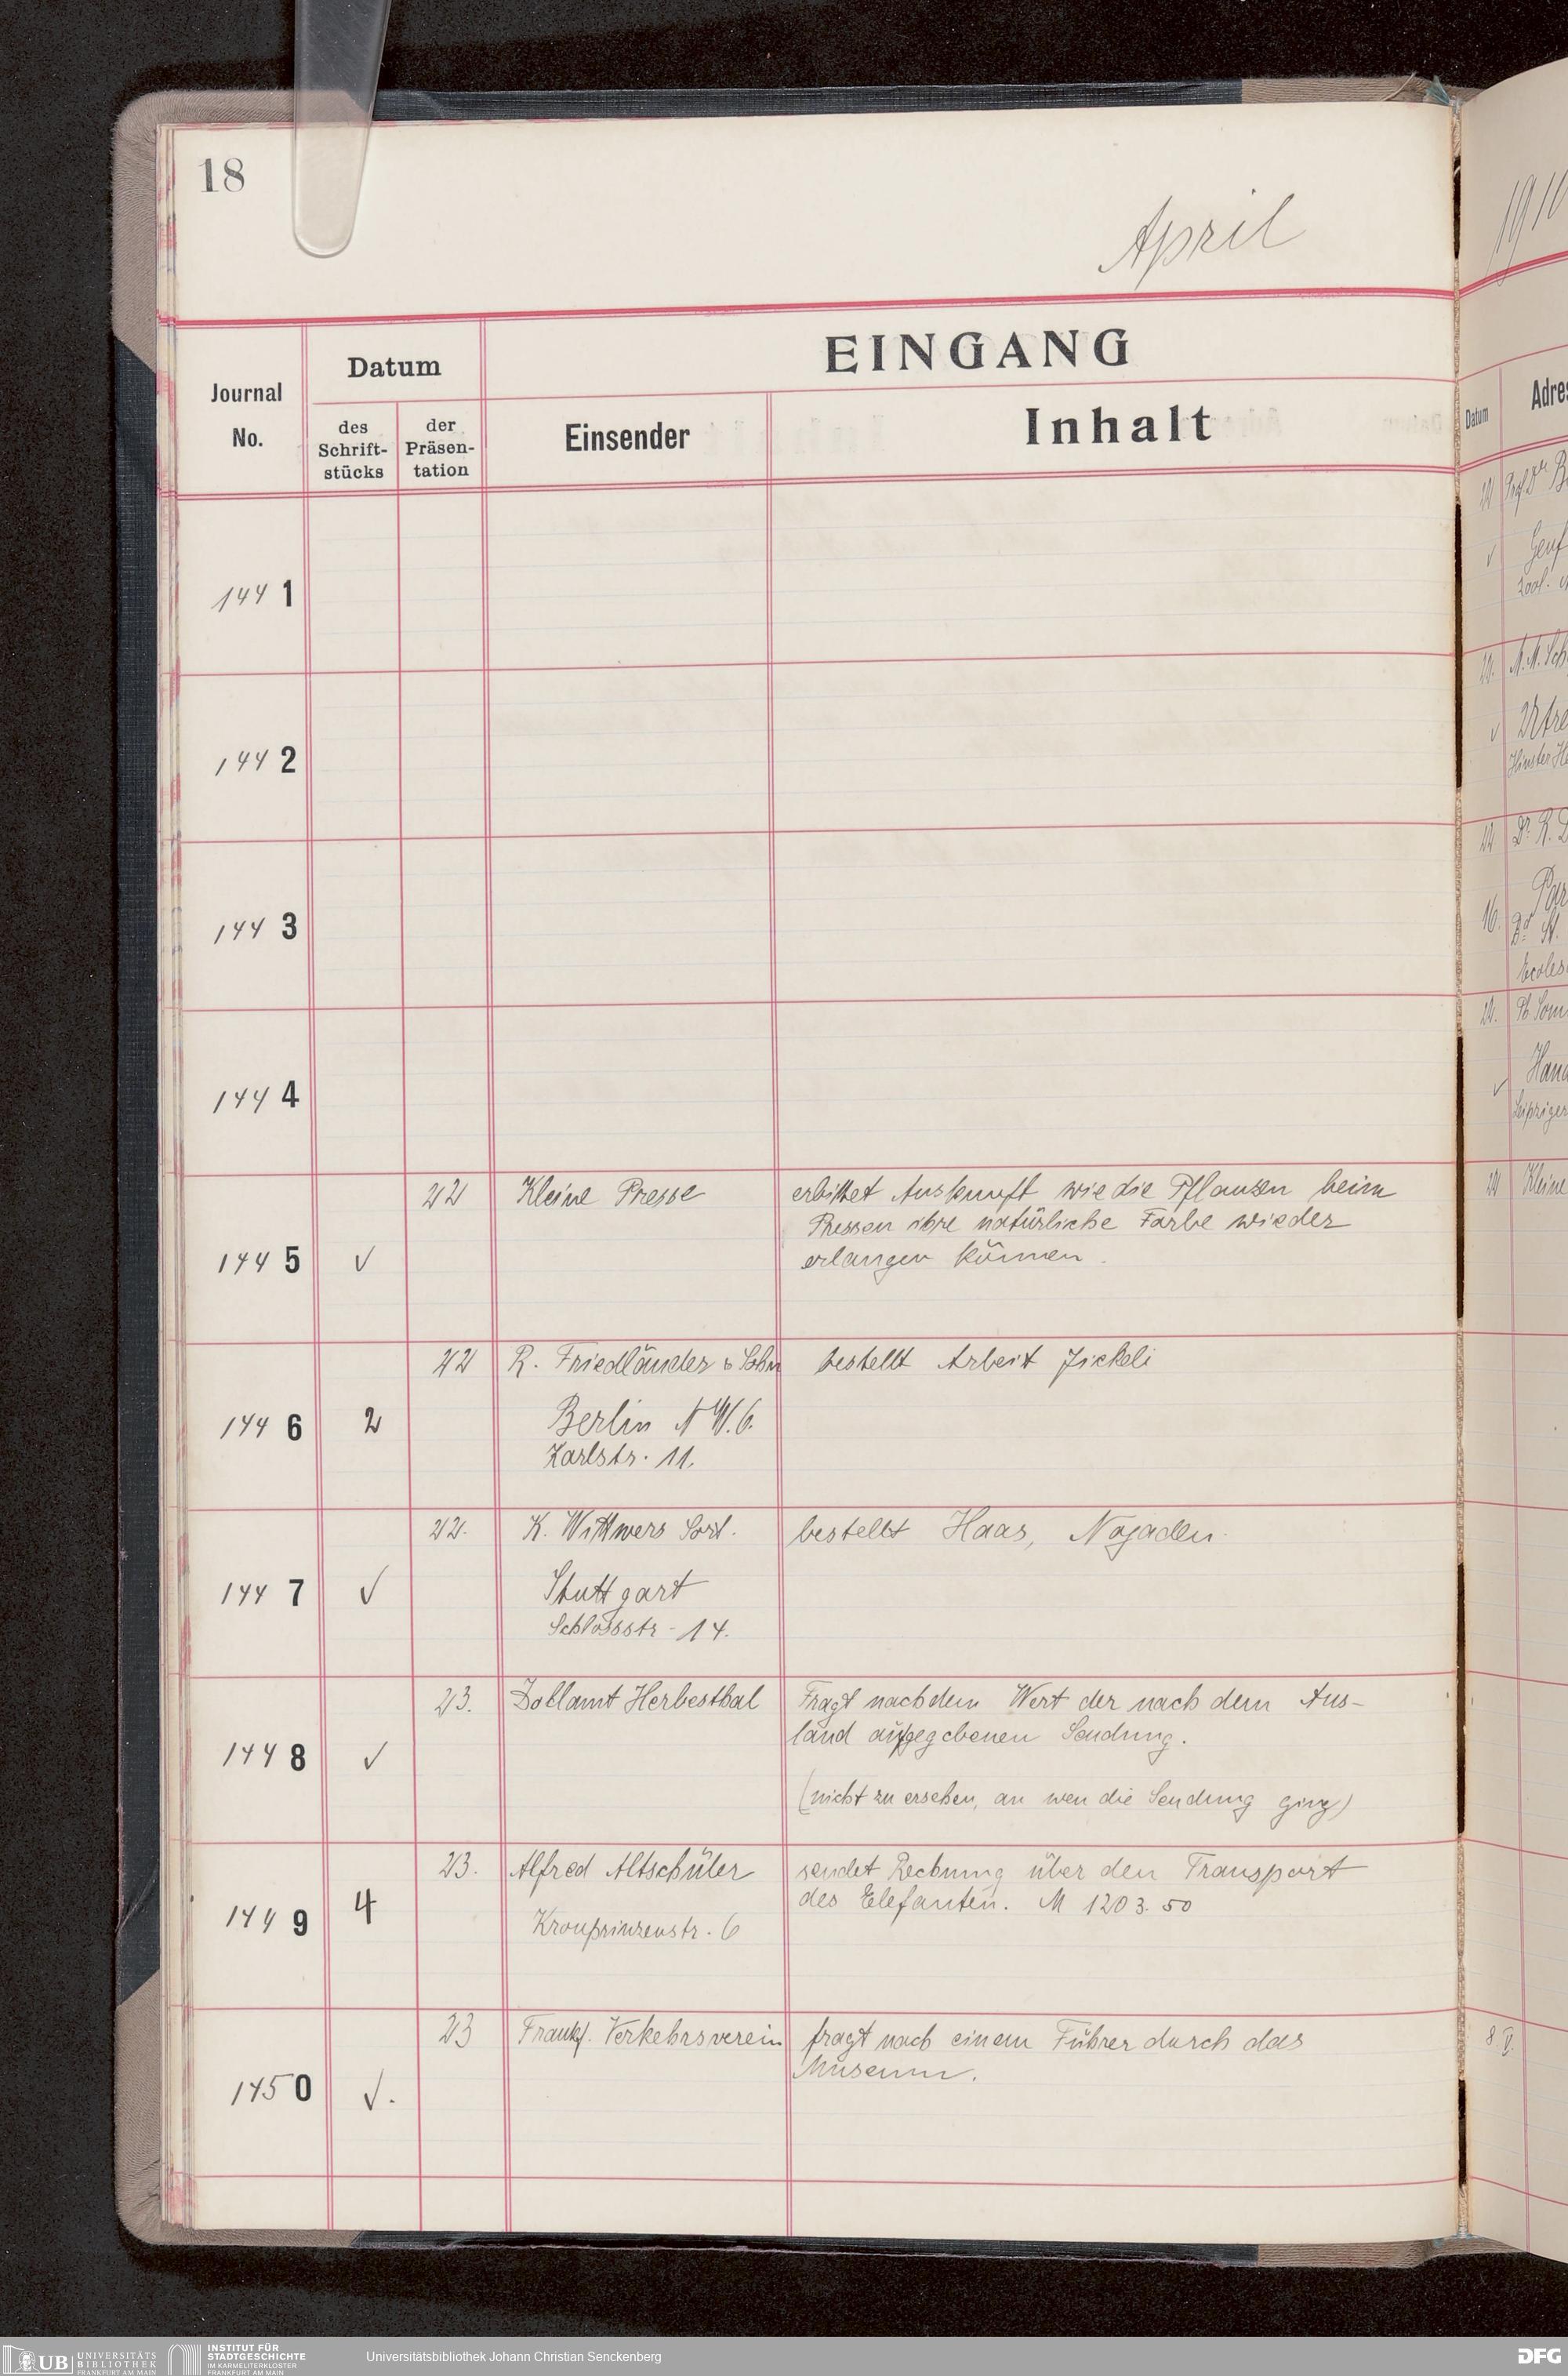 18
April
1910
EINGANG
Journal
No.
Datum
des
Schrift-
stücks
der
Präsen-
tation
Einsender
Inhalt
Datum
1441
1442
1443
1444
1445 √ 22 Kleine Presse
erbittet Auskunft wie die Pflanzen beim
Pressen ihre natürliche Farbe wieder
erlangen können.
1446 2 22 R. Friedländer & Sohn
Berlin N W. 6.
Karlstr. 11.
bestellt Arbeit Jickeli
1447 √ 22. K. Wittwers Sort.
Stuttgart
Schlossstr. 14.
bestellt Haas, Najaden.
1448 √ 23. Zollamt Herbesthal
Fragt nach dem Wert der nach dem Aus-
land aufgegebenen Sendung.
(nicht zu ersehen, an wen die Sendung ging)
1449 4 23. Alfred Altschüler
Kronprinzenstr. 6
sendet Rechnung über den Transport
des Elefanten. M 1203.50
1450 √. 23 Frankf. Verkehrsverein
fragt nach einem Führer durch das
Museum.
Genf
Kleine
8 V.
UB UNIVERSITÄTS
BIBLIOTHEK
FRANKFURT AM MAIN
INSTITUT FÜR
STADTGESCHICHTE
IM KARMELITERKLOSTER
FRANKFURT AM MAIN
Universitätsbibliothek Johann Christian Senckenberg
DFG